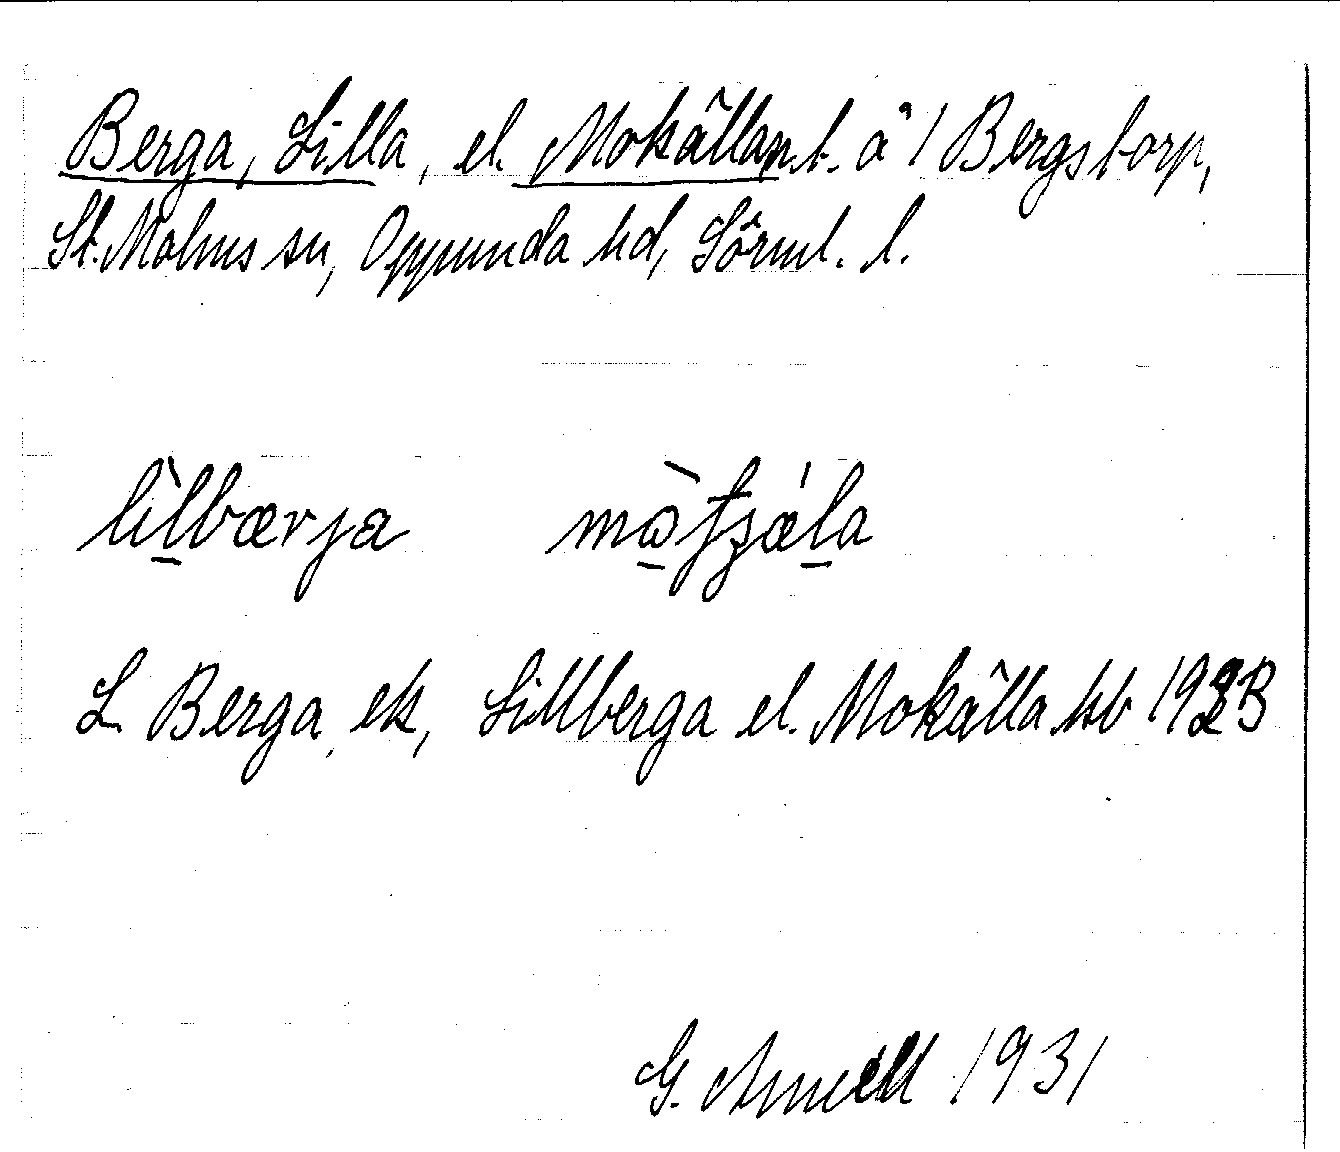 Berga, Lilla, el. Mokällan t. å 1 Bergstorp,
St. Malms sn, Oppunda hd, Sörml. l.
lìlbærja mòtʃǽla
L Berga ek, Lillberga el. Mokälla hb 1923
G. Arnell 1931